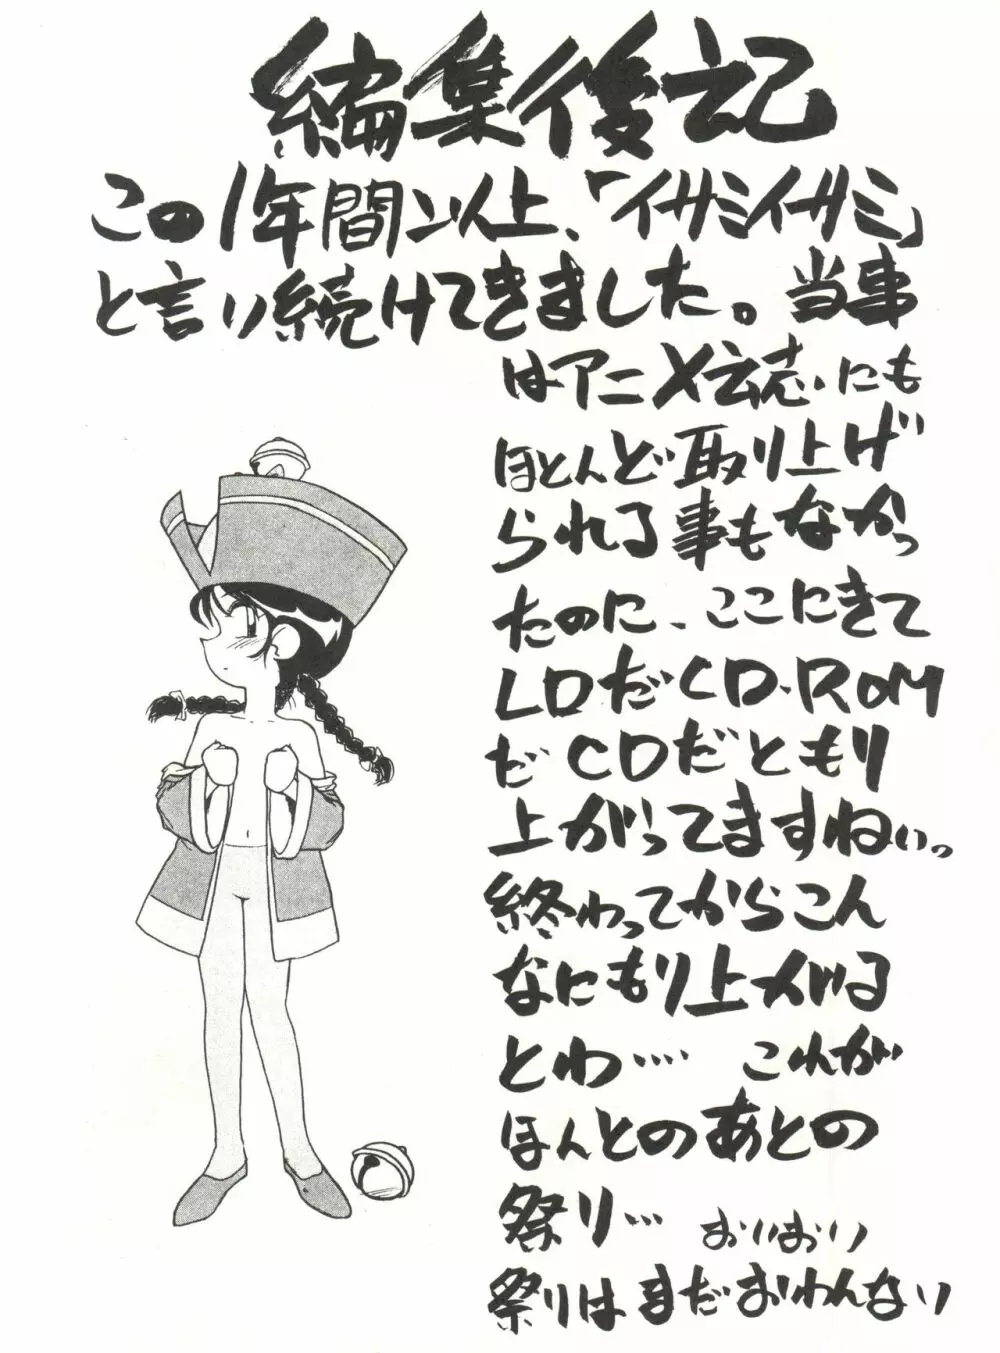 編集後記
この1年間以上、「イサミイサミ」
と言い続けてきました。当事
はアニメ雑誌にも
ほとんど取り上げ
られる事もなかっ
たのに、ここにきて
LDだCD-ROM
だCDだともり
上がってますねぃっ
終わってからこん
なにもり上がる
とわ… これが
ほんとのあとの
祭り… おいおい
祭りはまだおわんない